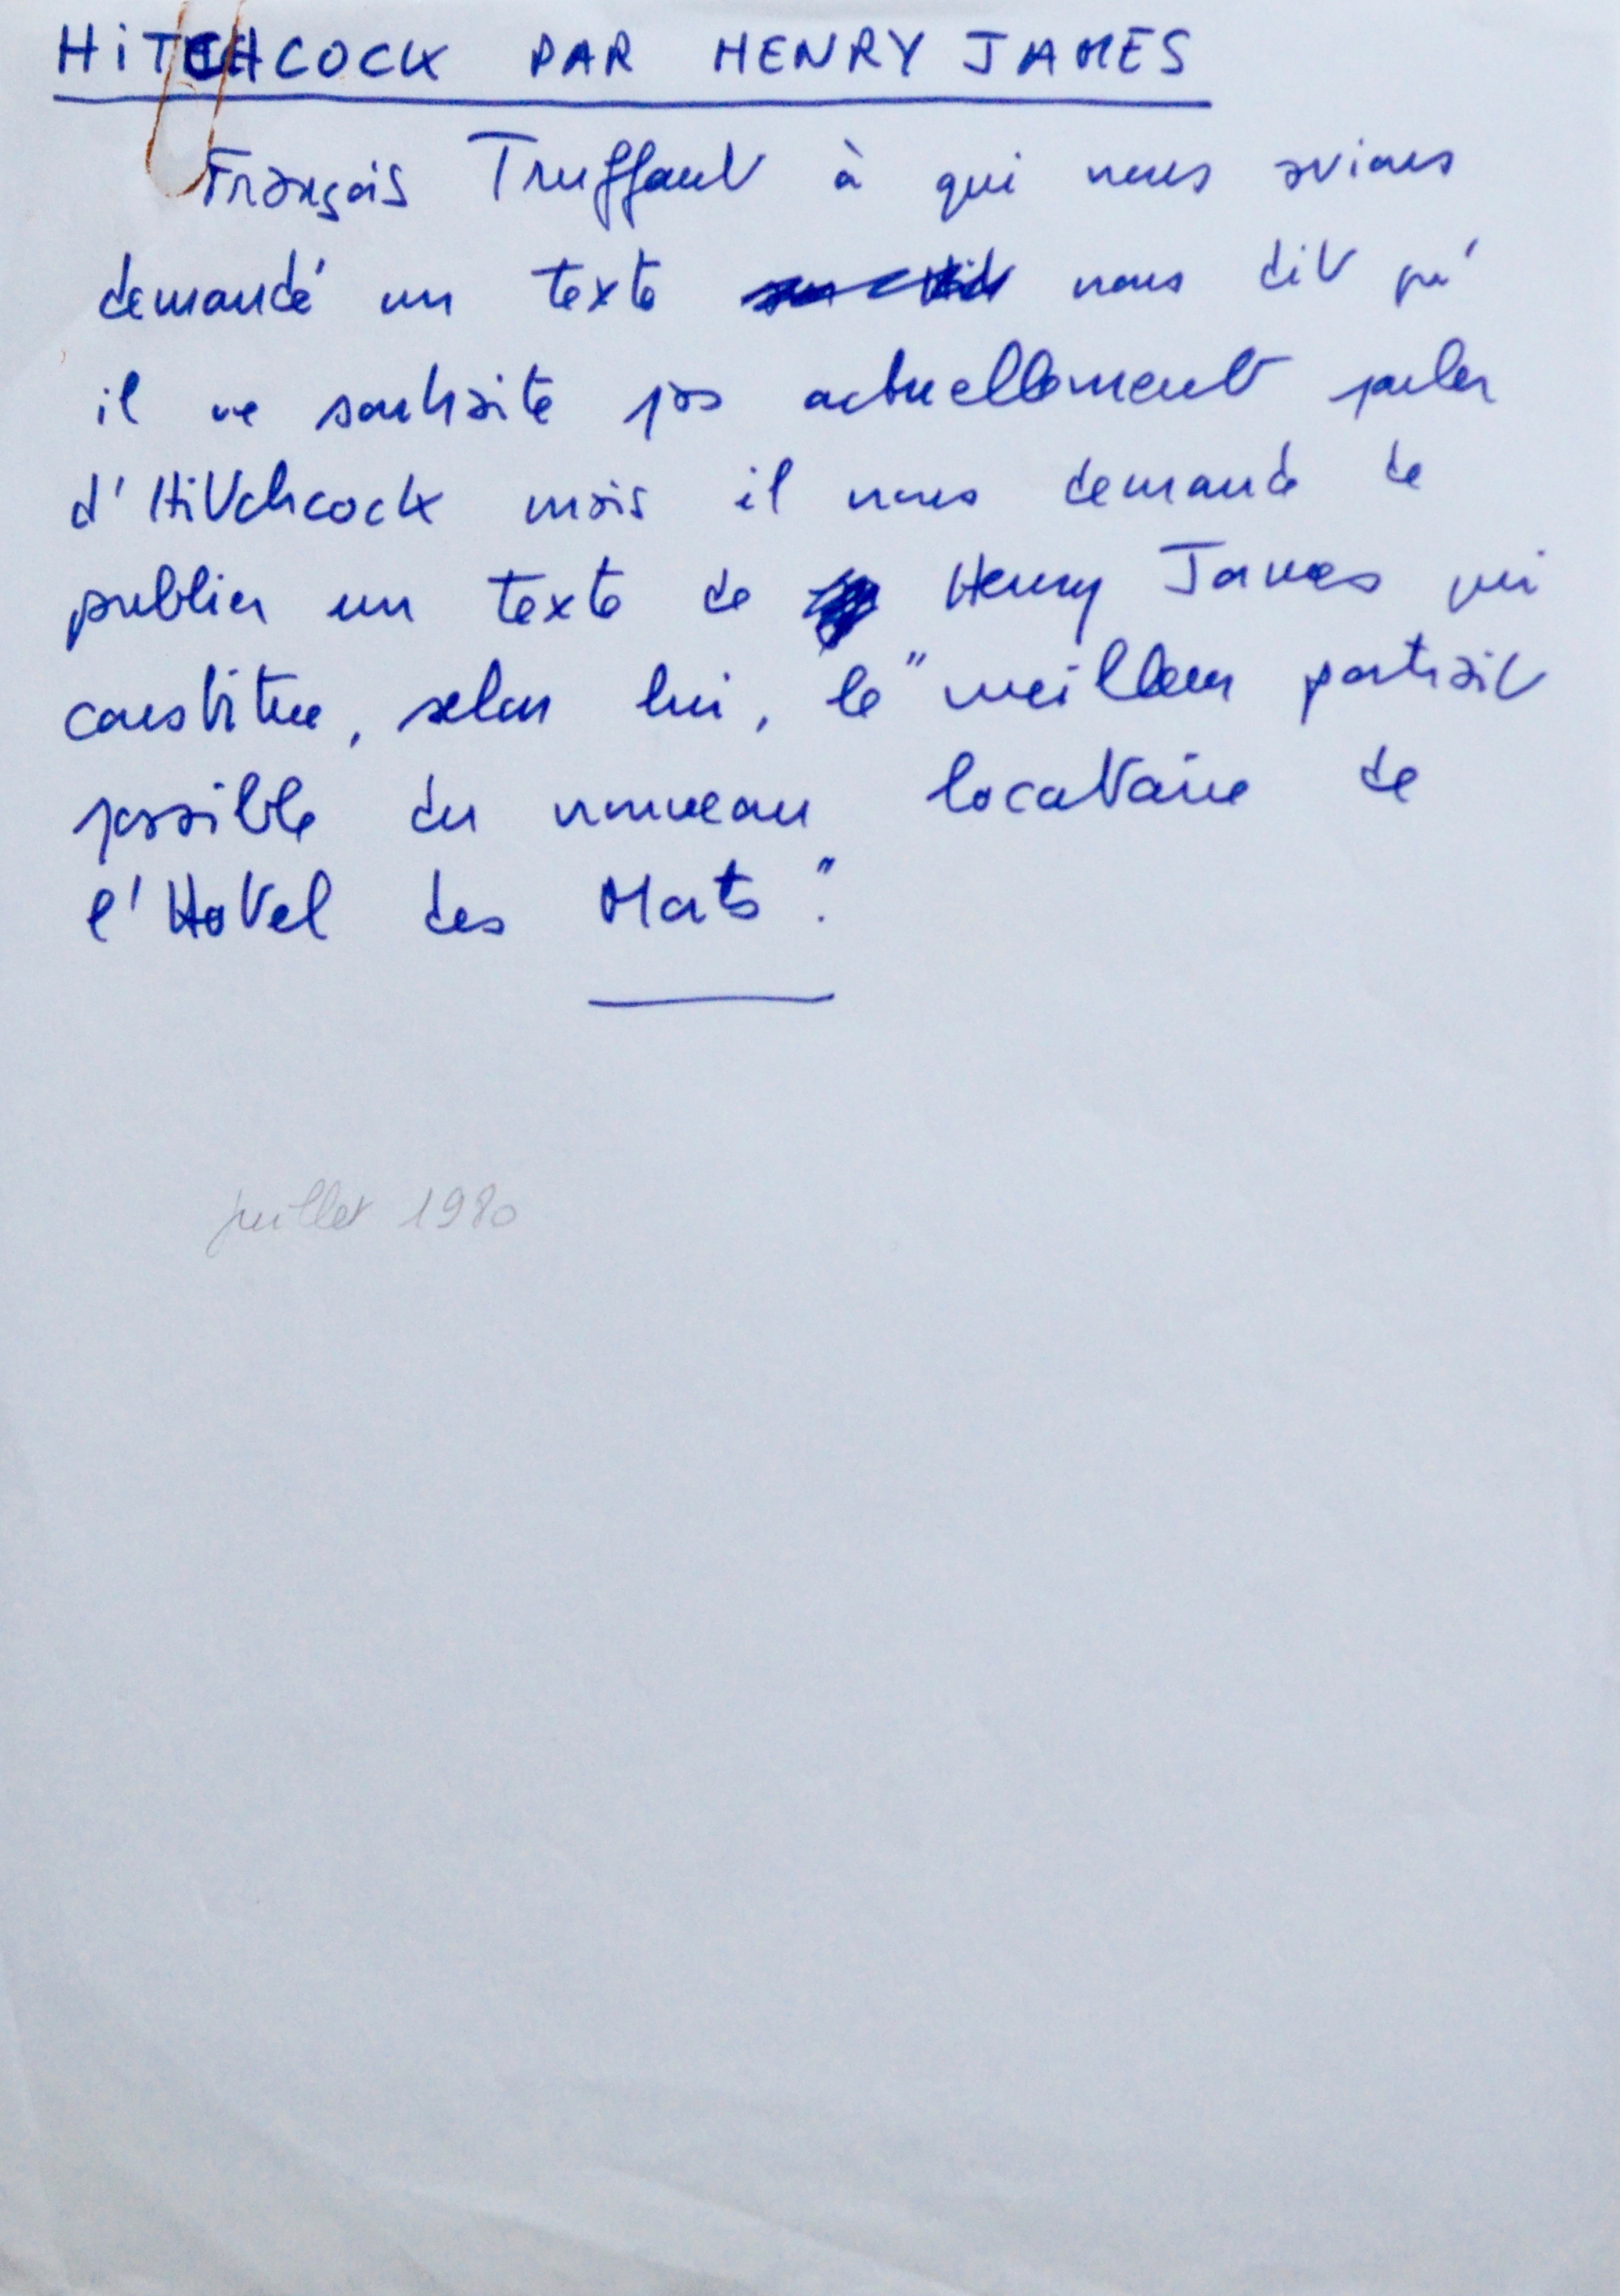 HiTCHCOCK PAR HENRY JAMES
François Truffaut à qui nous avions
demandé un texte nous dit qu'
il ne souhaite pas actuellement parler
d'Hitchcock mais il nous demande de
publier un texte de Henry James qui
constitue, selon lui, le "meilleur portrait
possible du nouveau locataire de
l'Hotel des Morts".
juillet 1980